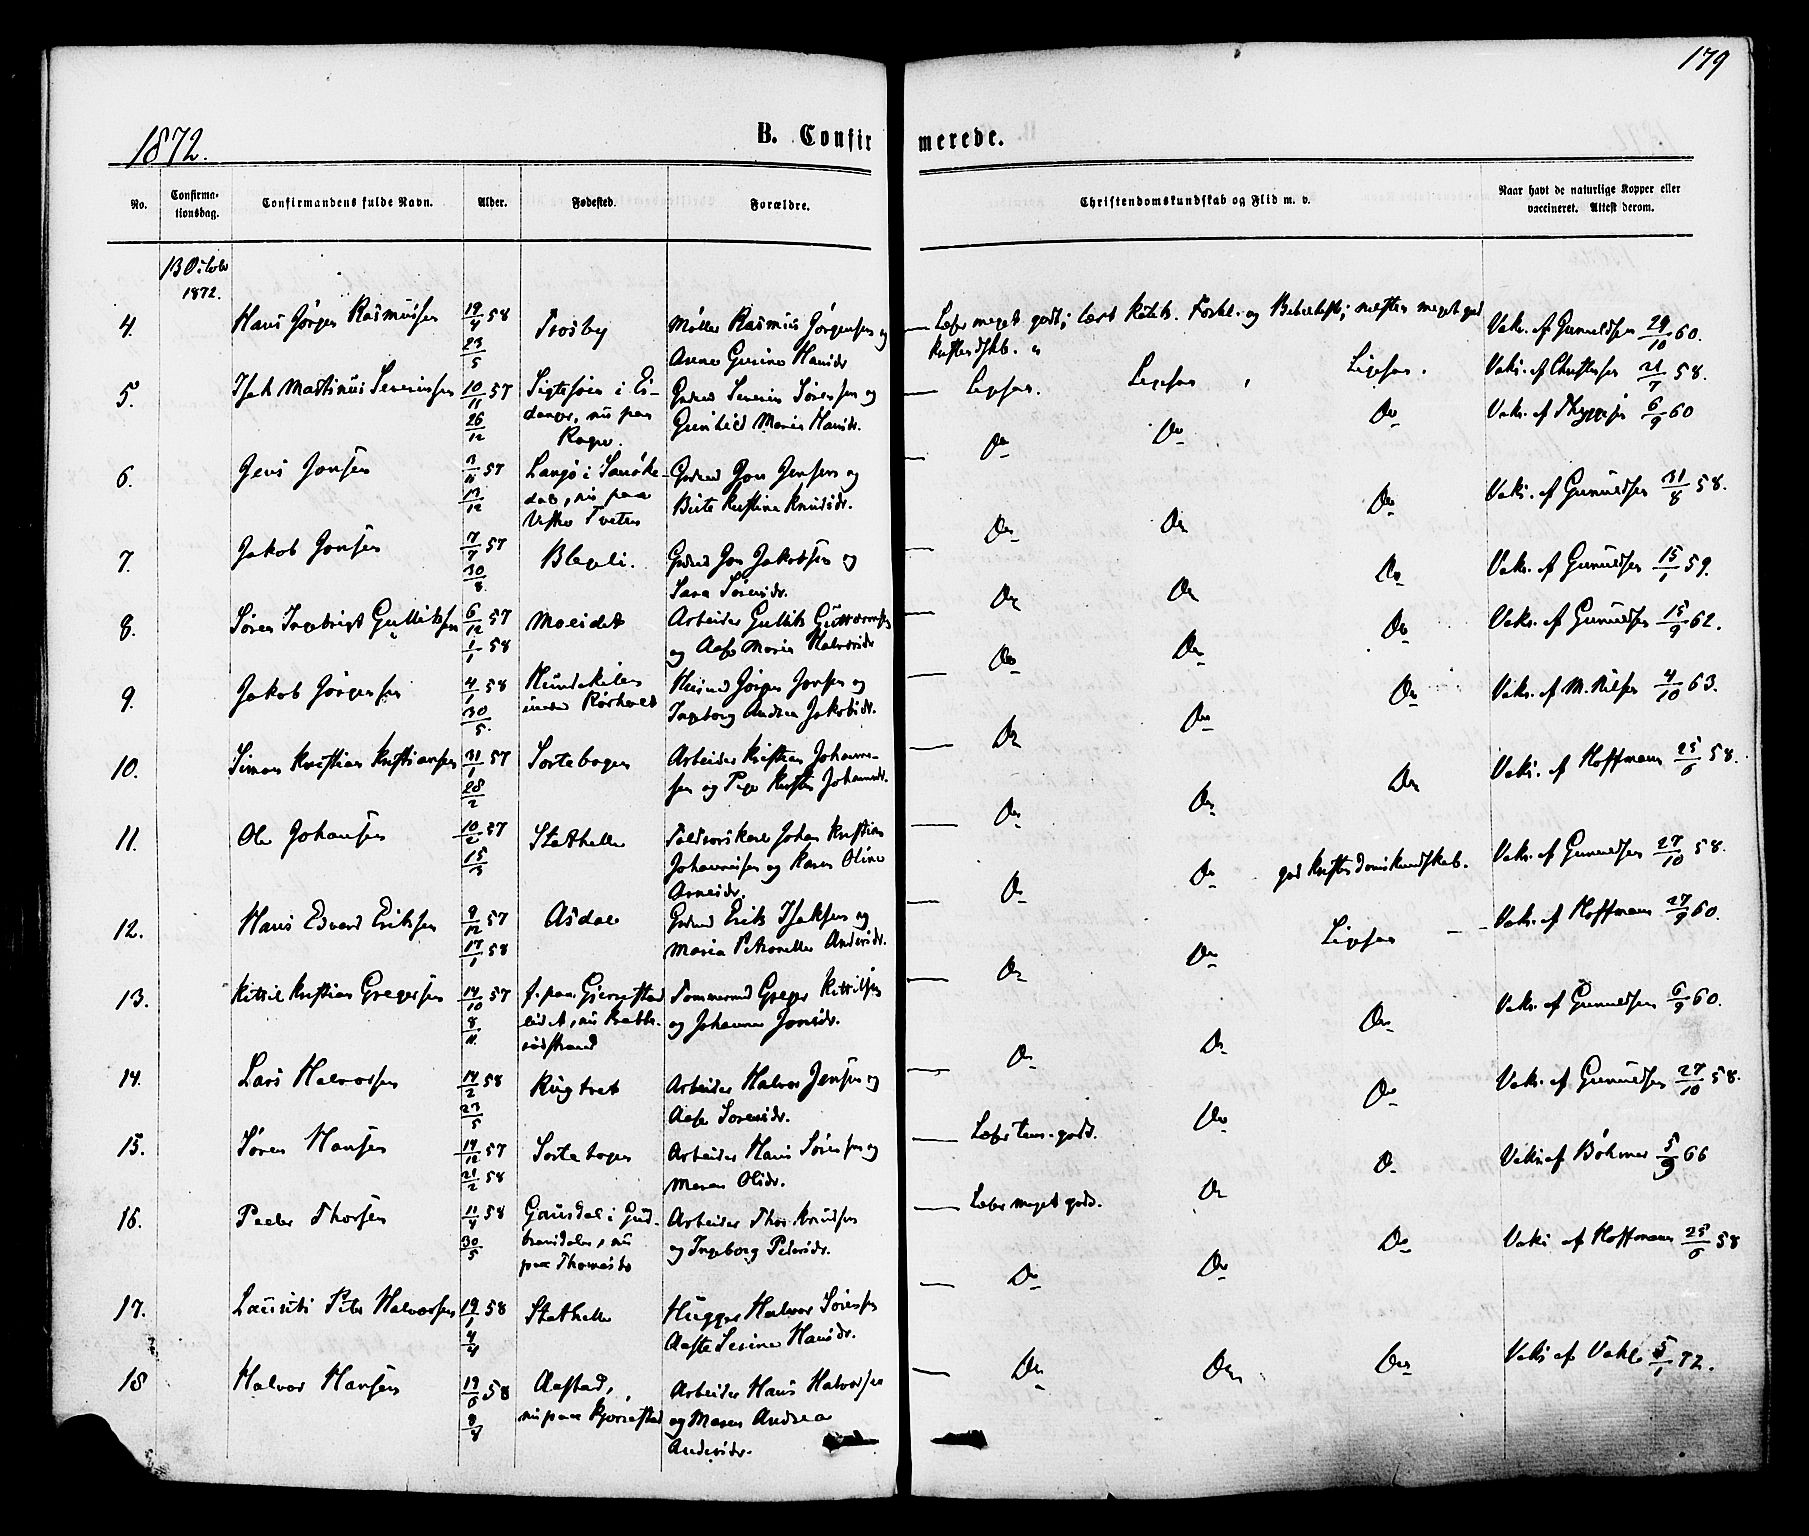 179
1872.
B. Confirmerede.
No. Confirmationsdag. Confirmandens fulde Navn. Alder. Fødested. Forældre. Christendomskundskab og Flid m. v. Naar havt de naturlige Kopper eller vaccineret. Attest derom.
13 October
1872.
4. Hans Jørgen Rasmussen 19/4 58 23/5 Trosby Møller Rasmus Jørgensen og
Anne Gurine Hansdr
Læser meget godt; lært Katek. Forkl. og Bibelhist; næsten meget god
Kristendskb.
Vaks. af Gunuldsen 29/10 60.
5. Isak Martinus Severinsen 10/11 57 26/12 Sigtesøen i Ei-
danger, nu paa
Gdmd Severin Sørensen og
Gunhild Maria Hansdr.
Ligesaa. Ligesaa Ligesaa.
Vaks. af Christensen 21/7 58.
6. Jens Jonsen 57 12 Langø i Sanøke-
dal, nu paa
Vestre Tveten
Gdmd Jon Jensen og
Birte Kirstine Knudsdr.
Do Do Do
Vaks. af 6/9 60
7. Jakob Jonsen 7/7 57 30/8 Blegeli. Gdmd Jon Jakobsen og
Sara Sørensdr.
Do Do Do
Vaks. af Gunuldsen 31/8 58.
8. Søren Ingebrigt Gulliksen 6/12 57 1/1 58 Moeidet Arbeider Gullik Guttormsen
og Aase Maria Halvorsdr
Do Do Do
Vaks. af Gunuldsen 15/1 59.
9. Jakob Jørgensen 4/1 58 30/5. Hundekilen
under Rørholt
Husmd Jørgen Jonsen og
Ingeborg Andrea Jakobsdr.
Do Do Do
Vaks. af Gunuldsen 15/9 62.
10. Simon Kristian Kristiansen 31/1 57 28/2 Sortebogen Arbeider Kristian Johanne-
sen og Pige Kirsten Johannesdr.
Do Do Do
Vaks. af M. Nilsen 4/10 63.
11. Ole Johansen 10/2 57 Stathelle Toldrorskarl Johan Kristian
Johannesen og Karen Oline
Arnesdr.
Do Do Do
Vaks. af Hoffmann 25/6 58.
12. Hans Edvard Eriksen 9/12 57 17/1 58 Asdal Gdmd Erik Isaksen og
Maria Petronelle Andersdr.
Do Do god Kristendomskundskab.
Vaks. af Gunuldsen 27/10 58.
13. Kittil Kristian Gregersen 14/10 57 8/11 f. paa Gjernestad
eidet, nu Krabbe-
rødstrand
Tømmermd Greger Kittilsen
og Johanne Jonsdr.
Do Do Ligesaa
Vaks. af Hoffmann 27/9 60.
14. Lars Halvorsen 14/2 58 23/5 Rugtvet Arbeider Halvor Jensen og
Aase Sørensdr.
Do Do Do
Vaks. af Gunuldsen 6/9 60.
15. Søren Hansen 14/12 57 21/2 58 Sortebogen Arbeider Hans Sørensen og
Maren Olsdr.
Læser tem. godt. Do Do
Vaks. af Gunuldsen 27/10 58.
16. Peder Thorsen 11/4 58 30/5 Gausdal i Gud-
brandsdalen, nu
Arbeider Thor Knudsen
og Ingeborg Pedersdr.
Læser meget godt. Do Do
Vaks. af Böhmer 5/9 66
17. Lauritz Peter Halvorsen 19/1 58 4/4 Stathelle Hugger Halvor Sørensen
Aaste Serine Hansdr.
Do Do Do
Vaks af Hoffmann 25/6 58
18 Halvor Hansen 19/6 58 8/8 Aastad,
nu paa Kjørrestad
Arbeider Hans Halvorsen
og Maren Andrea
Andersdr.
Do Do Do
Vaks af Vahl 5/1 72.